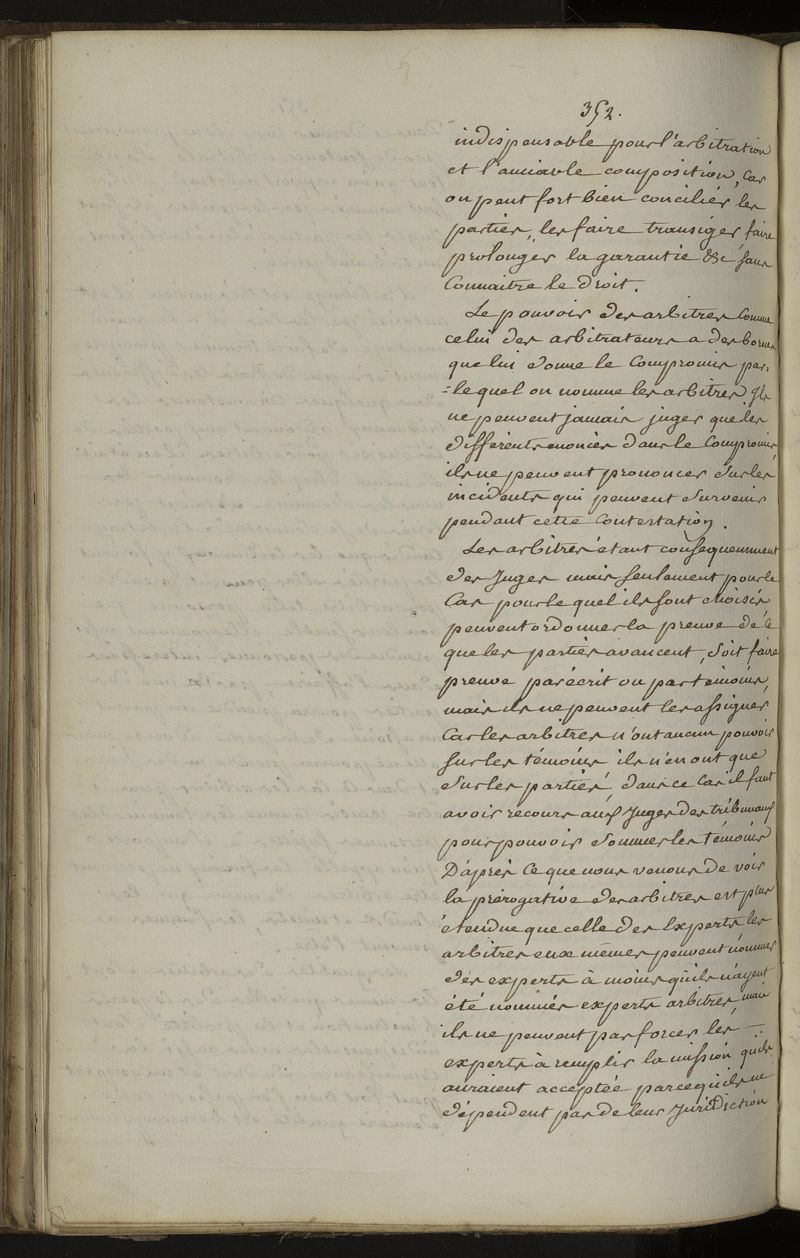 352.
indispensable pour l'arbitration
et l'amiable composition, car
on peut fort bien conciliér les
partiés, les faire transiger, faire
prolongér la garantie &c sans
Connaitre le droit.
Le pouvoir des arbitres Comme
celui des arbitrateurs a des bornes
que lui donne le Compromis par=
=lequel on nomme les arbitres Ils
ne peuvent jamais juger que les
différents enoncés dans le Compromis,
ils ne peuvent prononcer sur les
incidents qui peuvent survenir
pendant cette Contestation.
Les arbitres étant conséquemment
des Juges mais seulement pour le
Cas pour le quel ils sont choisis,
peuvent ordonner la preuve de ce
que les partiés avancent, soit faire
preuve par écrit ou par témoins,
mais ils ne peuvent les assigner
Car les arbitres n'ont aucun pouvoir
sur les témoins ils n'en ont que
sur les partiés, dans ce Cas il faut
avoir recours aux Juges des tribunaux
pour pouvoir sommer les témoins
D'aprés Ce que nous venons de voir
la prérogative des arbitres est plus
étendue que celle des Experts, les
arbitres eux mêmes peuvent nommer
des experts à moins qu'ils n'ayent
été nommés experts arbitres, mais
ils ne peuvent pas forcer les —
experts à remplir la mission qu'ils
auraient acceptée parcequ'ils ne
dépendent pas de leur Juridiction